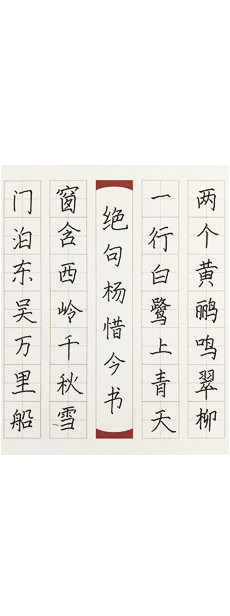 两个黄鹂鸣翠柳
一行白鹭上青天
绝句杨惜今书
窗含西岭千秋雪
门泊东吴万里船